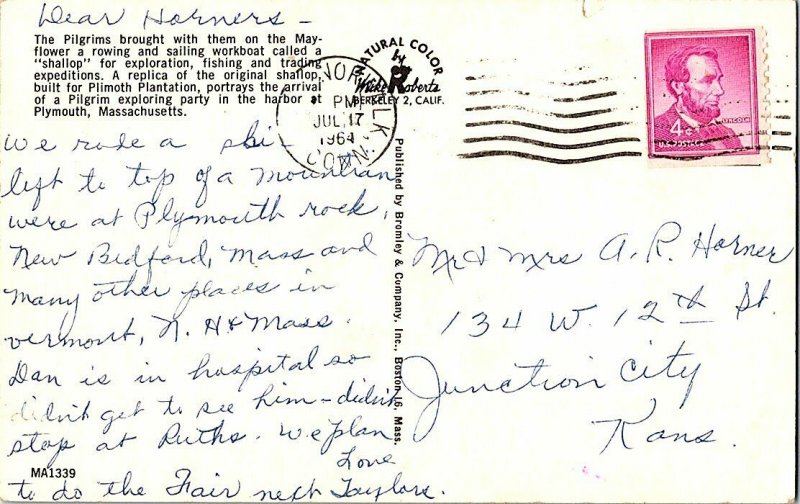 Dear Horners –
The Pilgrims brought with them on the May-
flower a rowing and sailing workboat called a
"shallop" for exploration, fishing and trading
expeditions. A replica of the original shallop,
built for Plimoth Plantation, portrays the arrival
of a Pilgrim exploring party in the harbor at
Plymouth, Massachusetts.
We rode a ski-
lift to top of a mountian
were at Plymouth rock,
New Bedford, Mass and
many other places in
vermont, N. H & Mass.
Dan is in hospital so
didn't get to see him – didn't
stop at Ruths. We plan
to do the Fair next
Love
Taylors.
MA1339
NATURAL COLOR
by
Mike Roberts
BERKELEY 2, CALIF.
NORWALK
PM
JUL 17
1964
CONN.
Published by Bromley & Company, Inc., Boston 16, Mass.
LINCOLN
4¢
U.S. POSTAGE
Mr & Mrs A. R. Horner
134 W. 12th St.
Junction City
Kans.